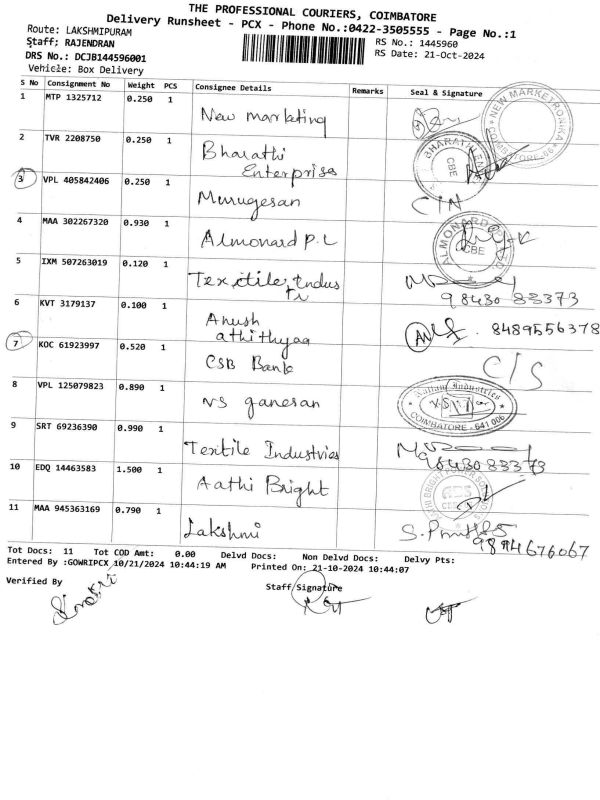 THE PROFESSIONAL COURIERS, COIMBATORE
Delivery Runsheet - PCX - Phone No.:0422-3505555 - Page No.:1
Route: LAKSHMIPURAM
RS No.: 1445960
Staff: RAJENDRAN
RS Date: 21-Oct-2024
DRS No.: DCJB144596001
Vehicle: Box Delivery
S No Consignment No Weight PCS Consignee Details Remarks Seal & Signature
1 MTP 1325712 0.250 1 New marketing
2 TVR 2208750 0.250 1 Bharathi Enterprises
3 VPL 405842406 0.250 1 Murugesan C/N
4 MAA 302267320 0.930 1 Almonard P.L
5 IXM 507263019 0.120 1 Textile Indus tri 98430 83373
6 KVT 3179137 0.100 1 Anush athithyaa 8489556378
7 KOC 61923997 0.520 1 CSB Bank C/S
8 VPL 125079823 0.890 1 VS ganesan
COIMBATORE - 641 006
9 SRT 69236390 0.990 1 Textile Industries 9843083373
10 EDQ 14463583 1.500 1 Aathi Bright
11 MAA 945363169 0.790 1 Lakshmi 9894676067
Tot Docs: 11 Tot COD Amt: 0.00 Delvd Docs: Non Delvd Docs: Delvy Pts:
Entered By :GOWRIPCX 10/21/2024 10:44:19 AM Printed On: 21-10-2024 10:44:07
Verified By
Staff Signature